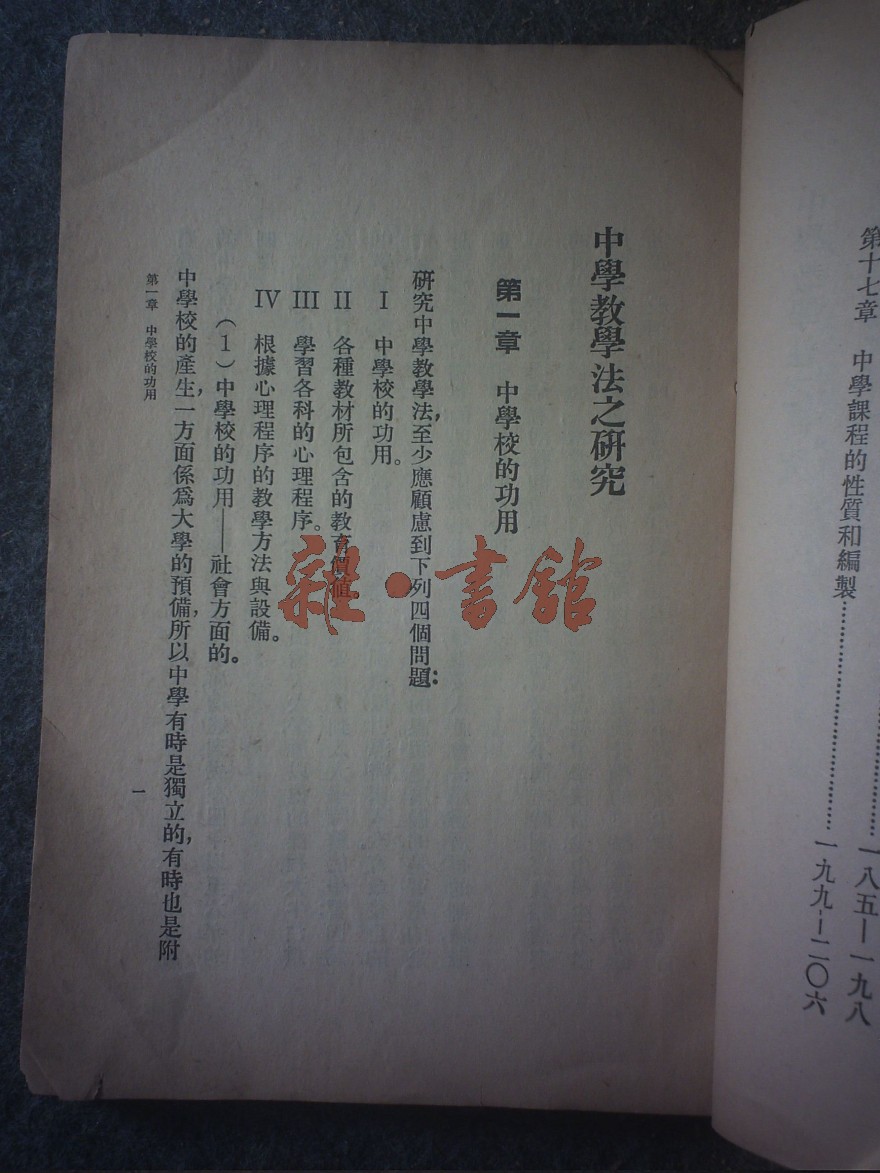 第十七章　中學課程的性質和編製……………………
一八五—一九八
一九九—二〇六
中學教學法之研究
第一章　中學校的功用
研究中學教學法，至少應顧慮到下列四個問題：
I　中學校的功用。
II　各種教材所包含的教育價值。
III　學習各科的心理程序。
IV　根據心理程序的教學方法與設備。
（1）中學校的功用——社會方面的。
中學校的產生，一方面係爲大學的預備，所以中學有時是獨立的，有時也是附
第一章　中學校的功用
一
雜·書館